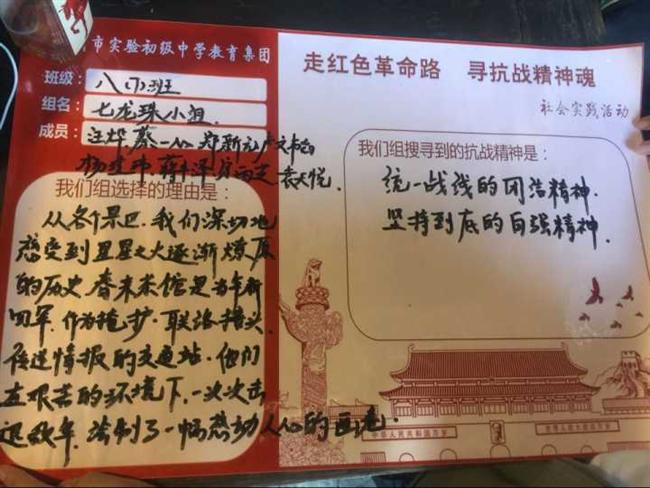 市实验初级中学教育集团
班级：八(1)班
组名：七龙珠小组.
成员：汪烨 蔡一心 郑新
袁天悦.
我们组选择的理由是：
从各个景区.我们深切地
感受到星星之火逐渐燎原
的历史.春来茶馆是当年新
四军.作为掩护.联络接头.
传送情报的交通站.他们
在艰苦的环境下.一次次击
退敌军.绘制了一幅感动人心的画卷
走红色革命路 寻抗战精神魂
社会实践活动
我们组搜寻到的抗战精神是：
统一战线的团结精神.
坚持到底的自强精神.
中华人民共和国万岁
世界人民大团结万岁